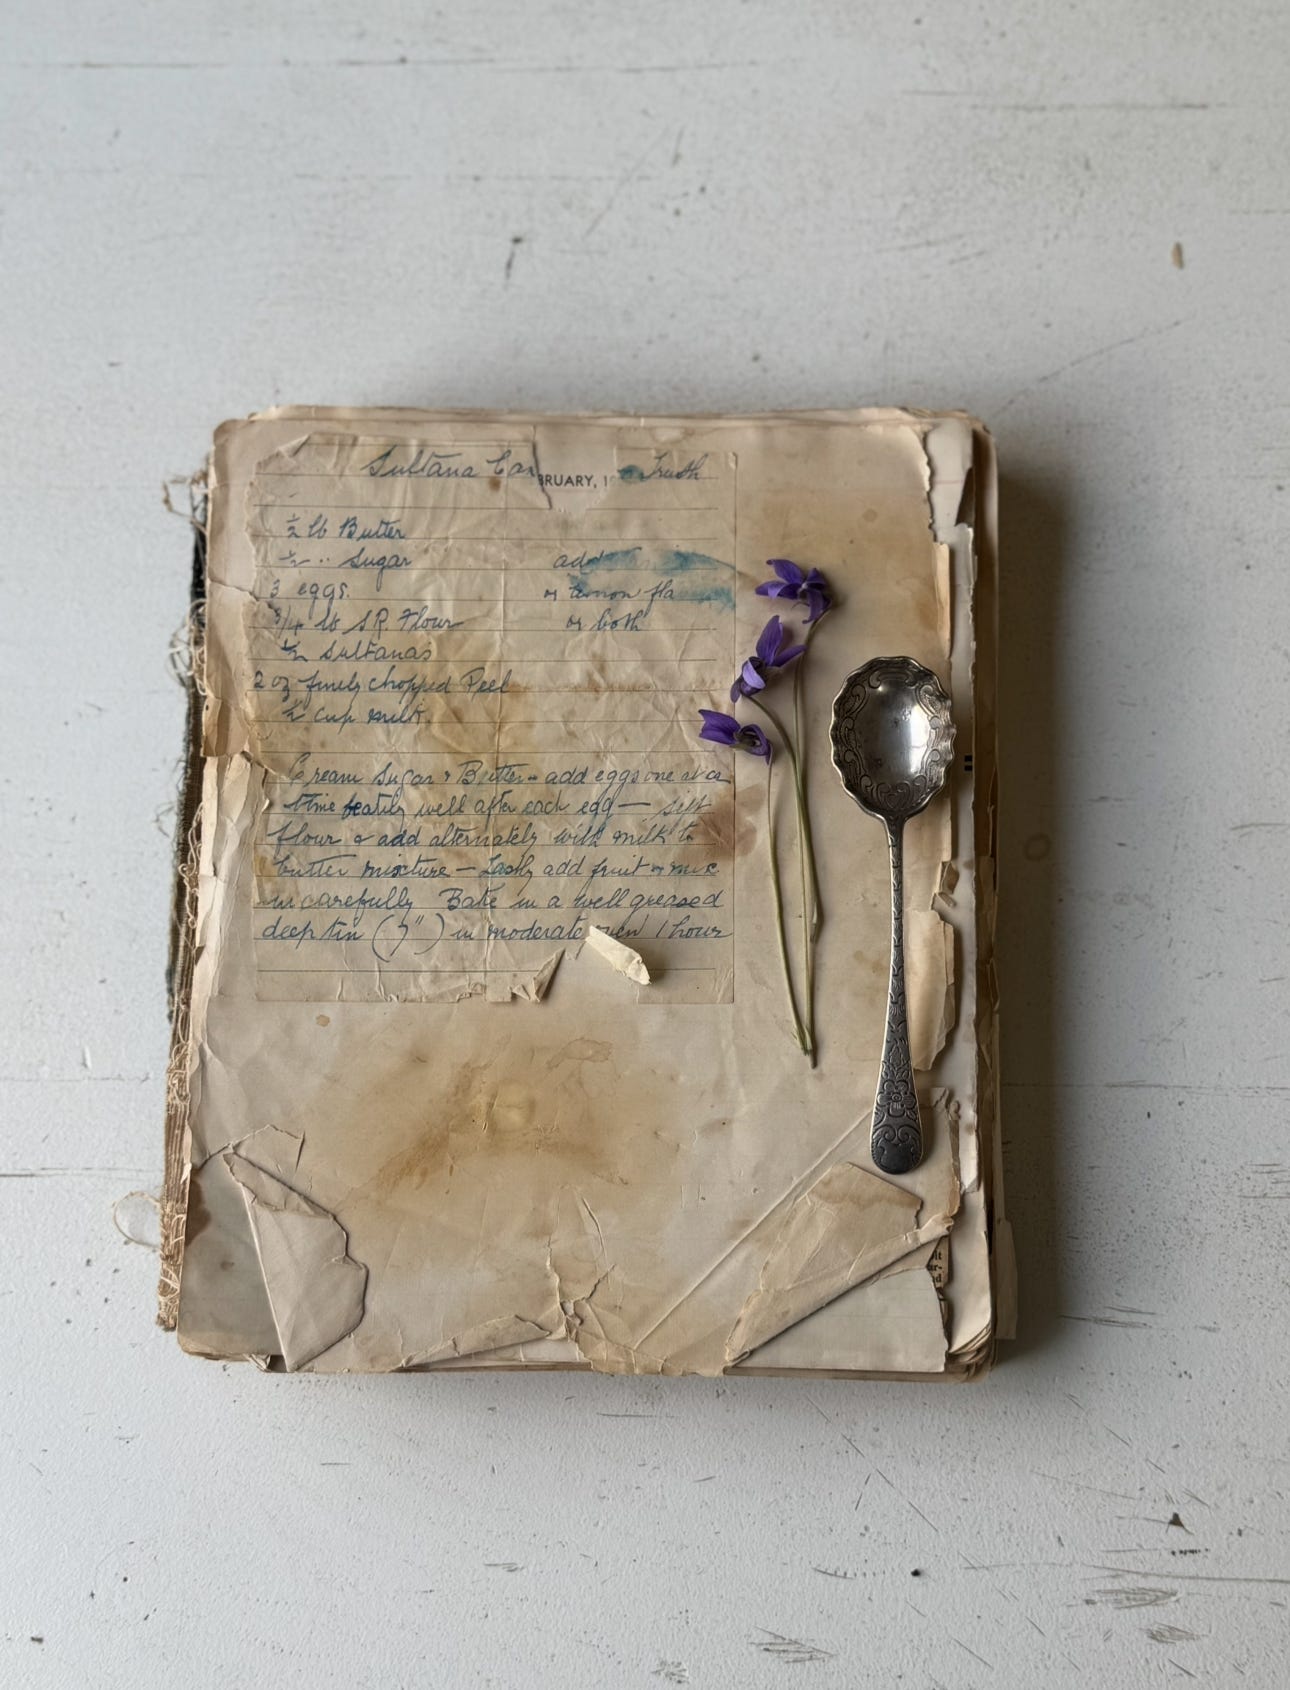 Sultana Ca
BRUARY, 1
Truth
½ lb Butter
½ " Sugar
3 eggs.
3/4 lb S R Flour
½ Sultanas
2 oz finely chopped Peel
½ cup milk.
ad
or lemon fla
or both
Cream Sugar & Butter - add eggs one at a
time beating well after each egg — sift
flour & add alternately with milk to
butter mixture — Lastly add fruit & mix
in carefully Bake in a well greased
deep tin (7") in moderate oven 1 hour
lt
ar-
d